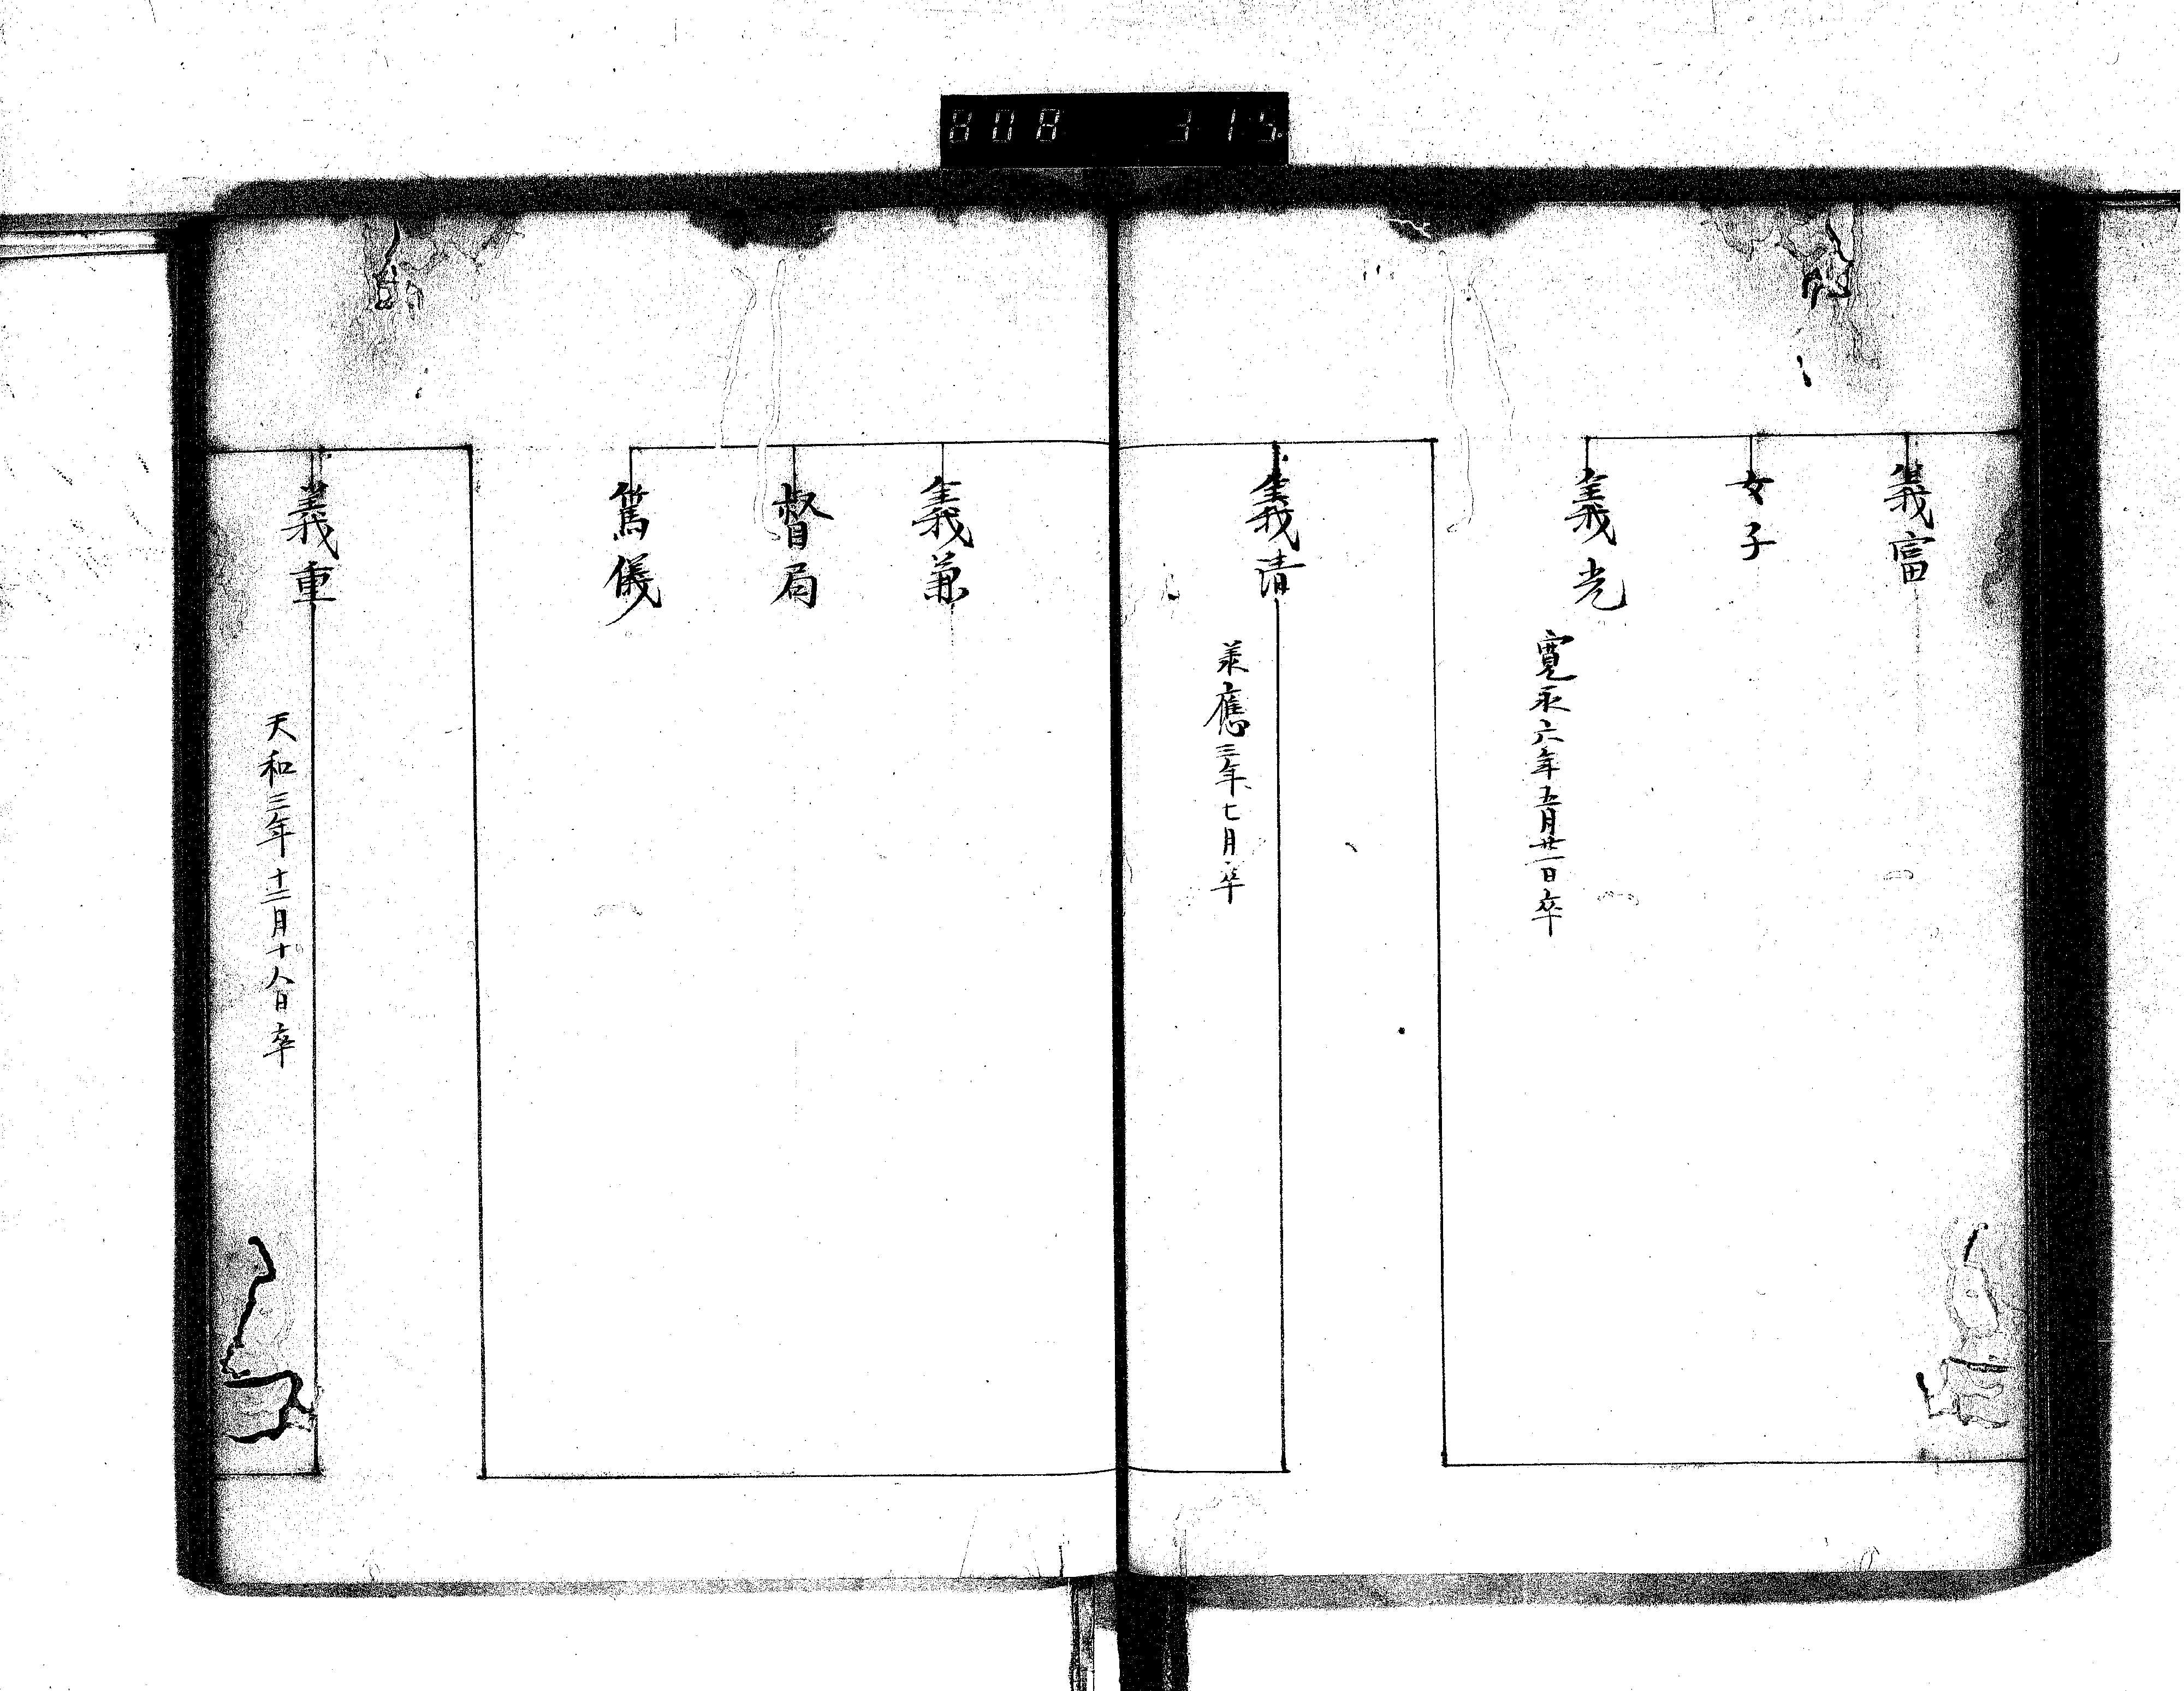 808 315
義富
女子
義光
寛永六年五月廿一日卒
義清
承應三年七月卒
義兼
督局
篤儀
義重
天和三年十二月十八日卒